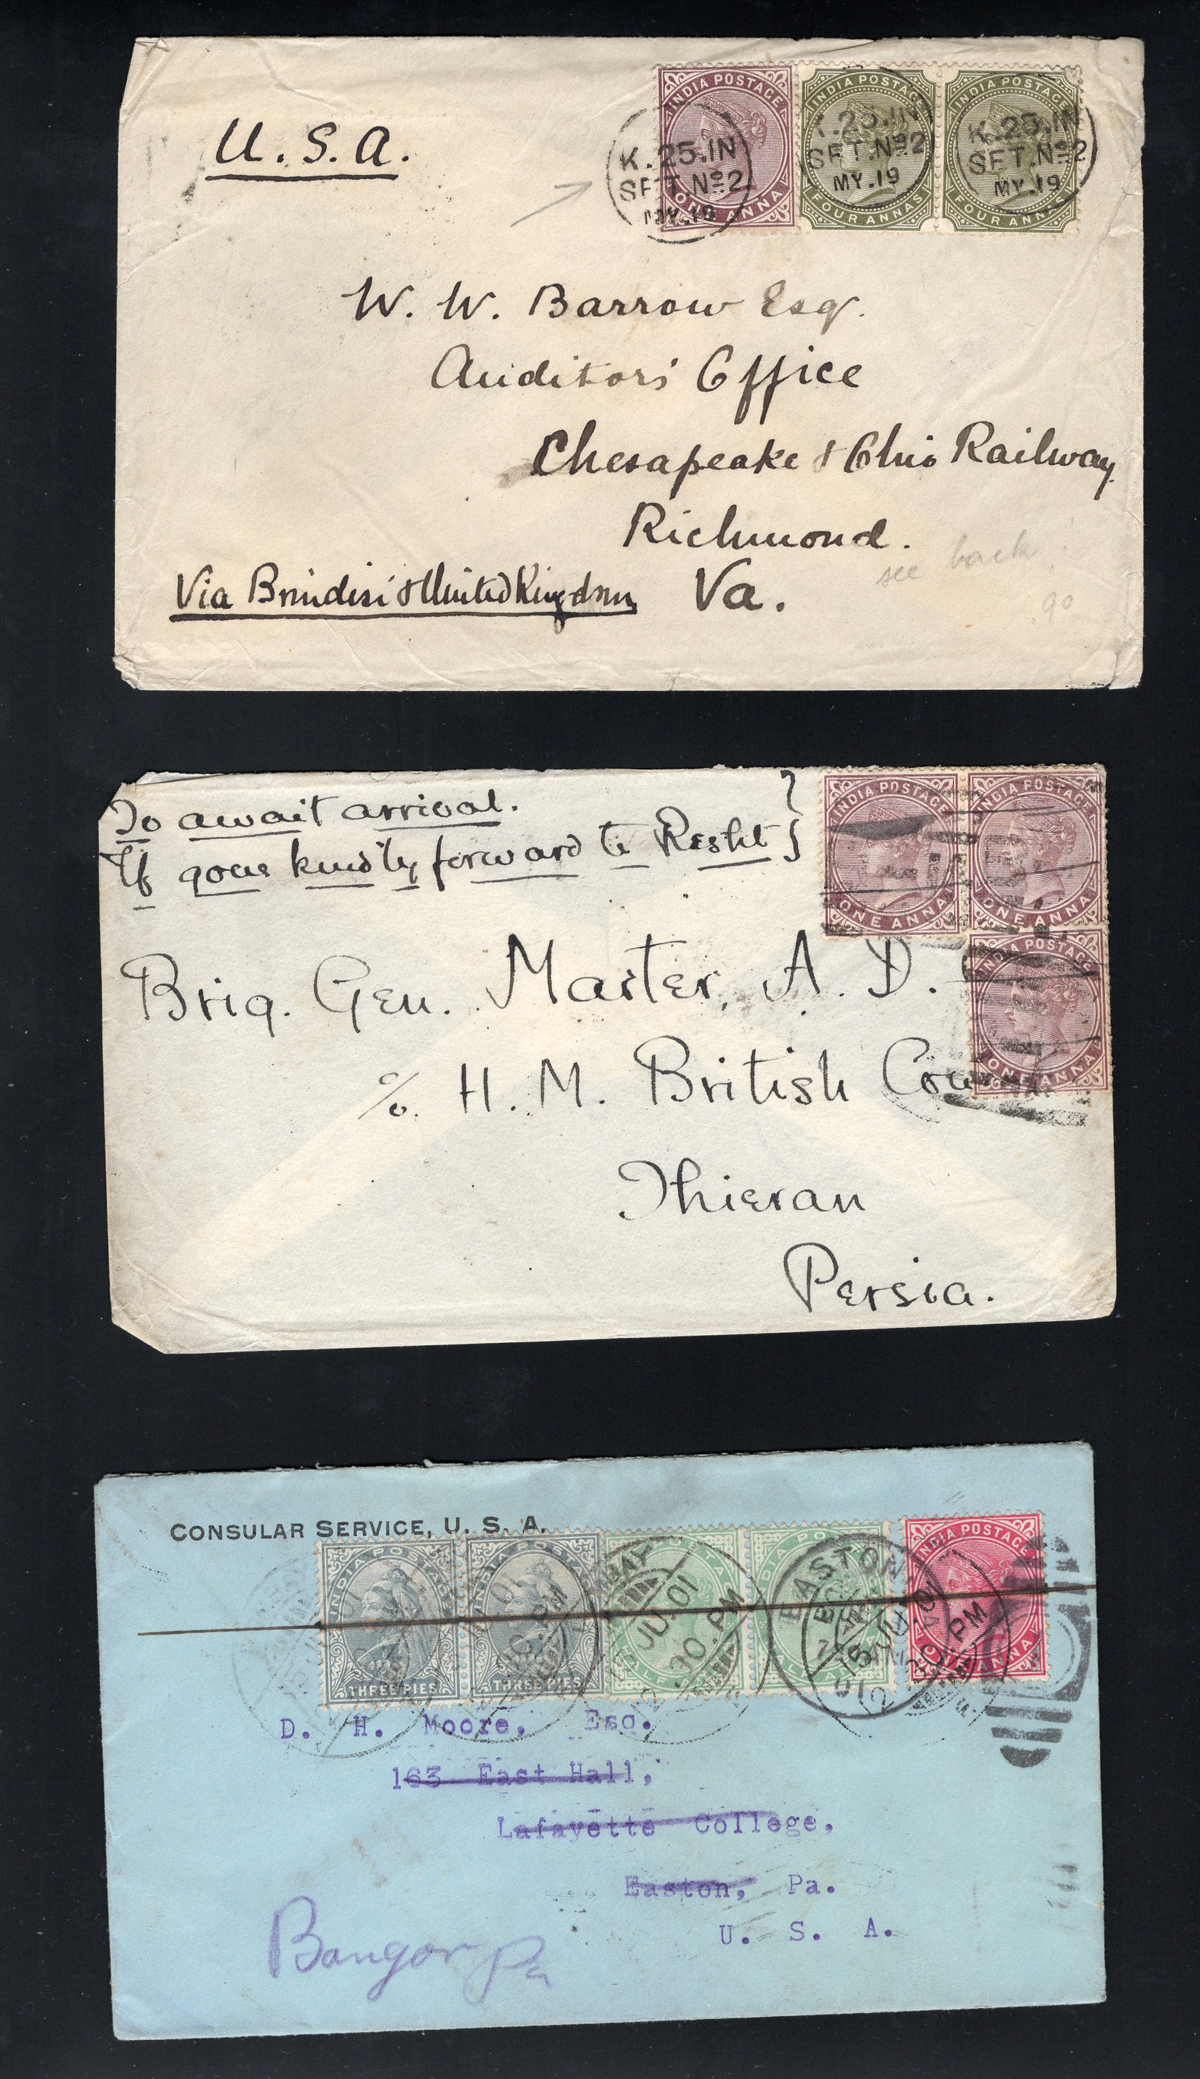 U. S. A.
INDIA POSTAGE
ONE ANNA
INDIA POSTAGE
FOUR ANNAS
INDIA POSTAGE
FOUR ANNAS
K. 25. IN
SET. No 2
MY. 19
K. 25. IN
SET. No 2
MY. 19
K. 25. IN
SET. No 2
MY. 19
W. W. Barrow Esq.
Auditors' Office
Chesapeake & Ohio Railway
Richmond.
see back!
Via Brindisi & United Kingdom Va.
90
To await arrival.
If gone kindly forward to Resht
INDIA POSTAGE
ONE ANNA
INDIA POSTAGE
ONE ANNA
INDIA POSTAGE
ONE ANNA
Brig. Gen. Master, A. D.
c/o. H. M. British
Thieran
Persia.
CONSULAR SERVICE, U. S. A.
INDIA POSTAGE
THREE PIES
INDIA POSTAGE
THREE PIES
INDIA POSTAGE
ONE ANNA
JU. 01
PM
EASTON
D. H. Moore, Esq.
163 East Hall,
Lafayette College,
Easton, Pa.
U. S. A.
Bangor Pa